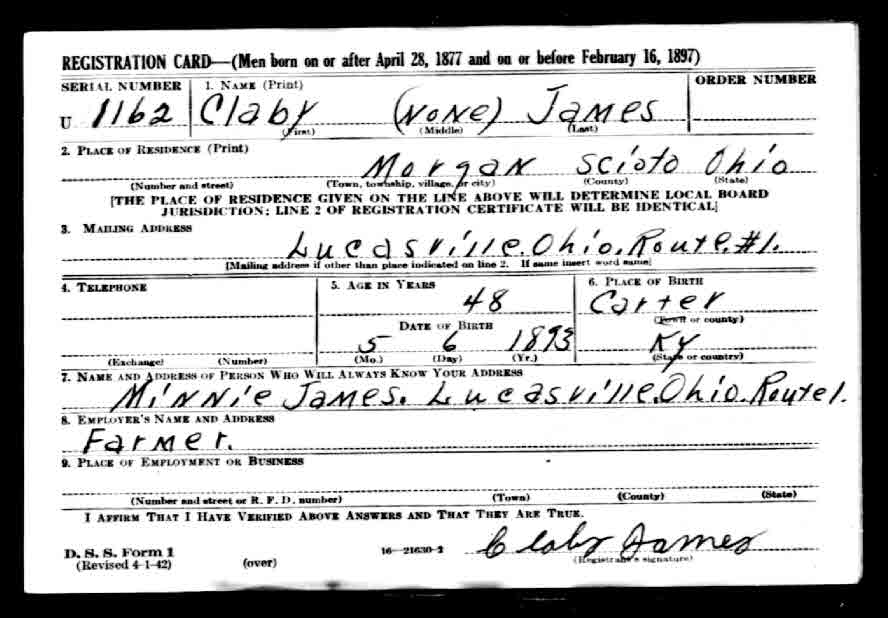 REGISTRATION CARD—(Men born on or after April 28, 1877 and on or before February 16, 1897)
SERIAL NUMBER 1. NAME (Print) ORDER NUMBER
U 1162 Claby (NoNe) James
(First) (Middle) (Last)
2. PLACE OF RESIDENCE (Print)
Morgan Scioto Ohio
(Number and street) (Town, township, village, or city) (County) (State)
[THE PLACE OF RESIDENCE GIVEN ON THE LINE ABOVE WILL DETERMINE LOCAL BOARD
JURISDICTION; LINE 2 OF REGISTRATION CERTIFICATE WILL BE IDENTICAL]
3. MAILING ADDRESS
Lucasville. Ohio. Route. #1.
[Mailing address if other than place indicated on line 2. If same insert word same]
4. TELEPHONE 5. AGE IN YEARS 6. PLACE OF BIRTH
48 Carter
DATE OF BIRTH (Town or county)
5 6 1893 Ky
(Exchange) (Number) (Mo.) (Day) (Yr.) (State or country)
7. NAME AND ADDRESS OF PERSON WHO WILL ALWAYS KNOW YOUR ADDRESS
Minnie James. Lucasville. Ohio. Route 1.
8. EMPLOYER'S NAME AND ADDRESS
Farmer.
9. PLACE OF EMPLOYMENT OR BUSINESS
(Number and street or R. F. D. number) (Town) (County) (State)
I AFFIRM THAT I HAVE VERIFIED ABOVE ANSWERS AND THAT THEY ARE TRUE.
D. S. S. Form 1 16—21630-2 Claby James
(Revised 4-1-42) (over) (Registrant's signature)